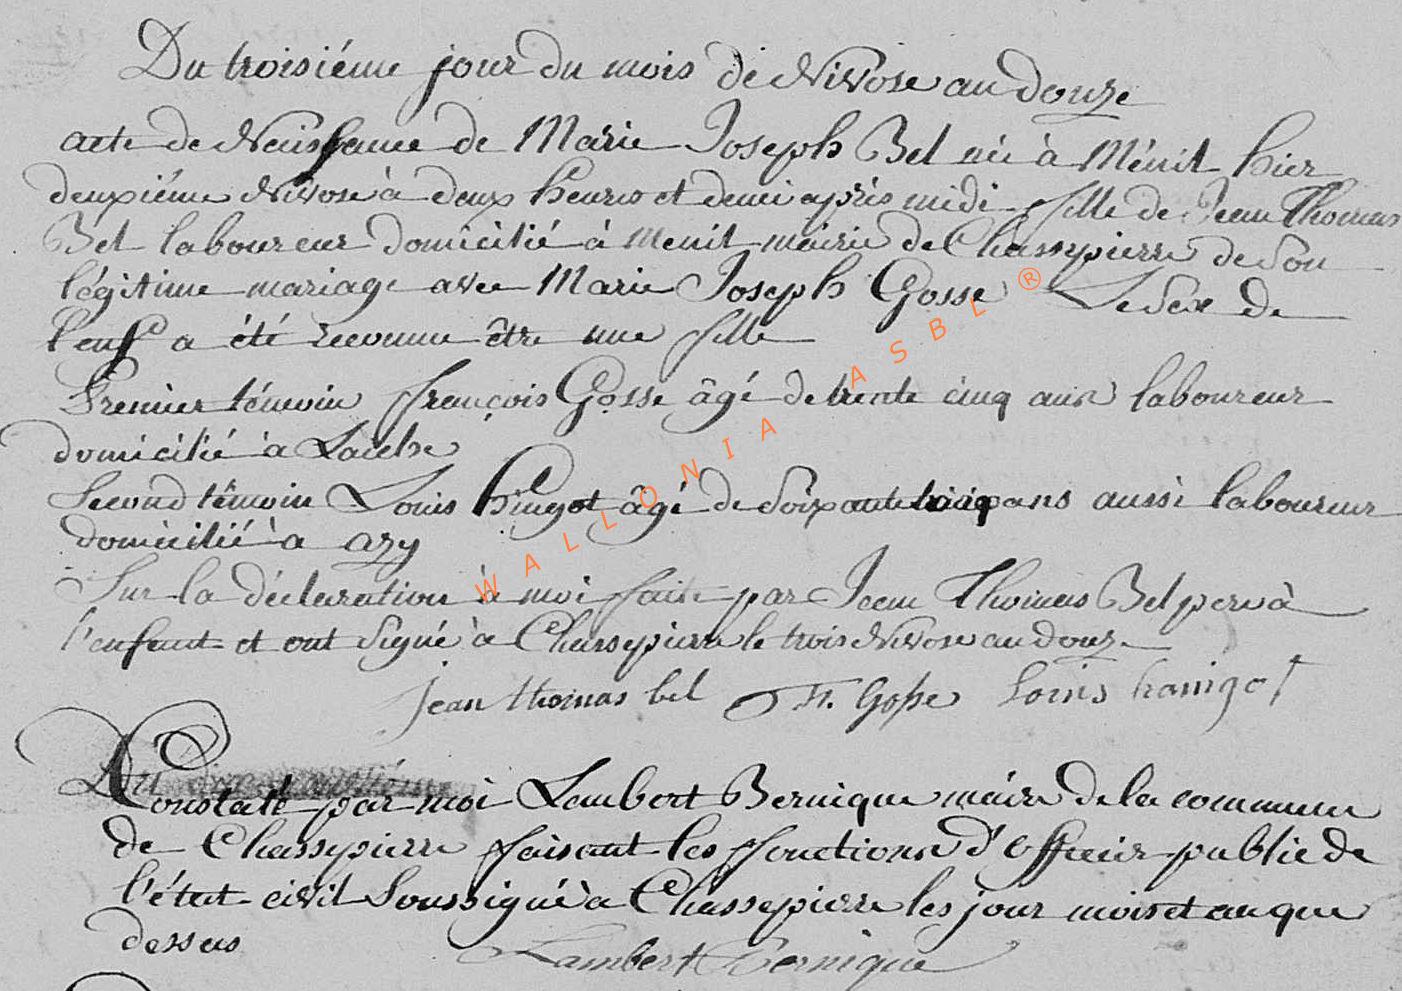 Du troisiéme jour du mois de Nivose an douze
acte de Naissance de Marie Joseph Bel née à Ménil hier
deuxiéme Nivose à deux heures et demi après midi fille de Jean Thomas
Bel laboureur domicilié à Menil mairie de Chassepierre de son
légitime mariage avec Marie Joseph Gosse Le Sex de
l'enf a été reconnu être une fille
Premier témoin françois Gosse âgé de trente cinq ans laboureur
domicilié à Laiche
Second témoin Louis âgé de Soixante cinq ans aussi laboureur
domicilié à azy
Sur la déclaration à moi faite par Jean Thomas Bel pere à
l'enfant et ont Signé à Chassepierre le trois Nivose an douze
jean thomas bel Fr. Gosse Louis hanigot
Du
Constaté par moi Lambert Bernique maire de la commune
de Chassepierre faisant les fonctions d'officier public de
l'état civil Soussigné à Chassepierre les jour mois et an que
dessus Lambert Bernique
WALLONIA ASBL ®